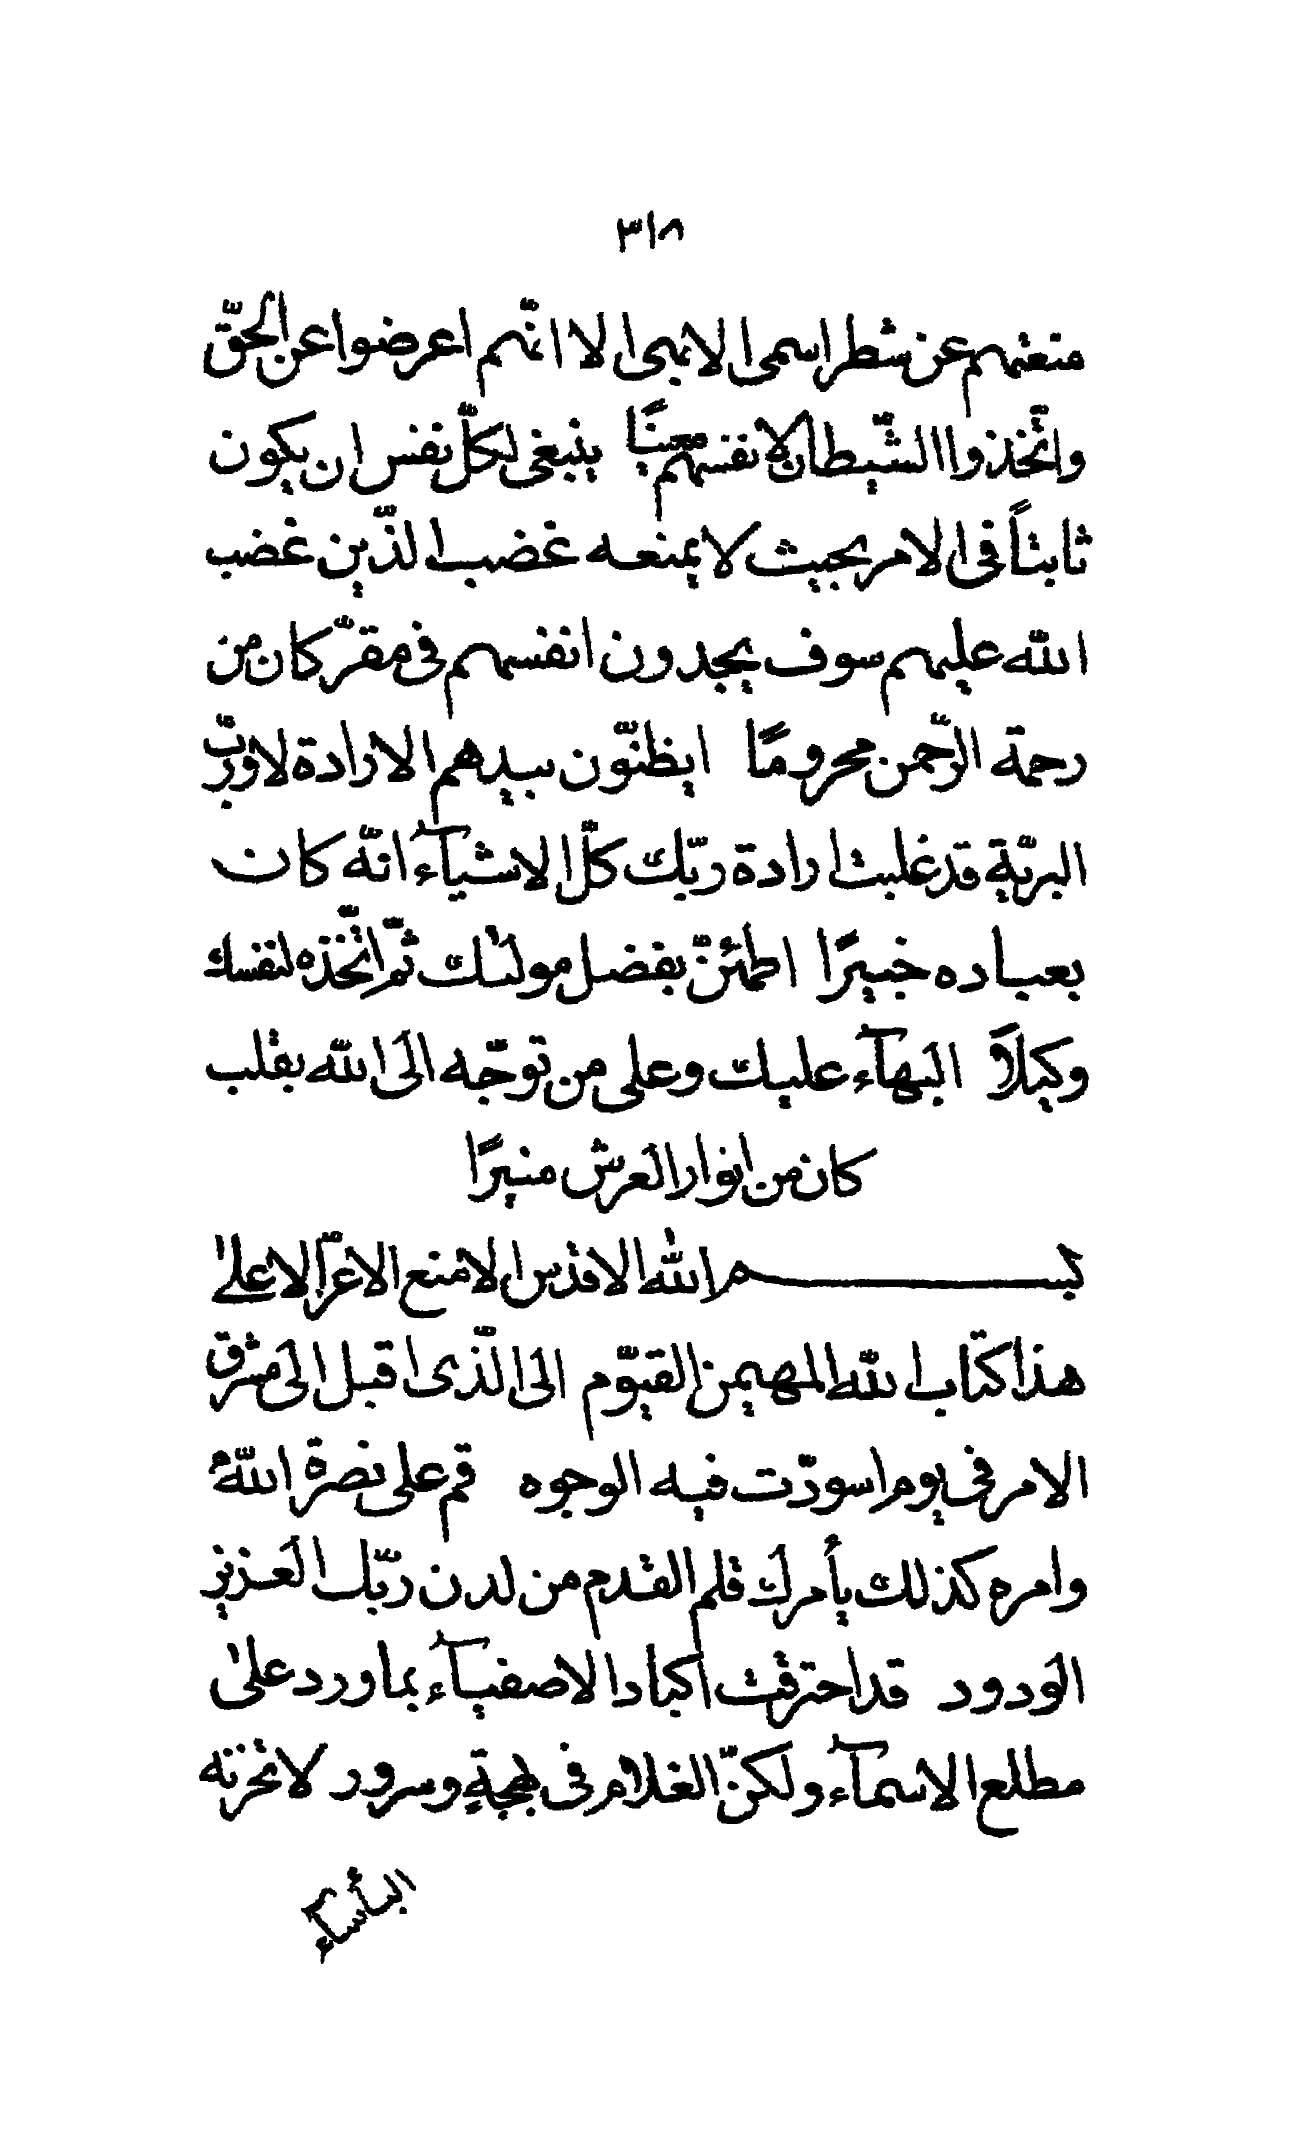 ٣١٨
منعتهم عن شطر اسمی الابهی الا انّهم اعرضوا عن الحقّ
واتّخذوا الشّیطان لانفسهم معینًا ینبغی لکلّ نفس ان یکون
ثابتاً فی الامر بحیث لا یمنعه غضب الّذین غضب
اللّه علیهم سوف یجدون انفسهم فی مقرّ کان من
رحمة الرّحمن محرومًا ایظنّون بیدهم الارادة لا وربّ
البریّة قد غلبت ارادة ربّک کلّ الاشیآء انّه کان
بعباده خبیرًا اطمئنّ بفضل مولٰک ثمّ اتّخذه لنفسک
وکیلاً البهآء علیک وعلی من توجّه الی اللّه بقلب
کان من انوار العرش منیرًا
بسم اللّه الاقدس الامنع الاعزّ الاعلیٰ
هذا کتاب اللّه المهیمن القیّوم الی الّذی اقبل الی مشرق
الامر فی یوم اسودّت فیه الوجوه قم علی نصرة اللّه
وامره کذلک یأمرک قلم القدم من لدن ربّک العزیز
الودود قد احترقت اکباد الاصفیآء بما ورد علیٰ
مطلع الاسمآء ولکنّ الغلام فی بهجةٍ وسرور لا تحزنه
البأسآء